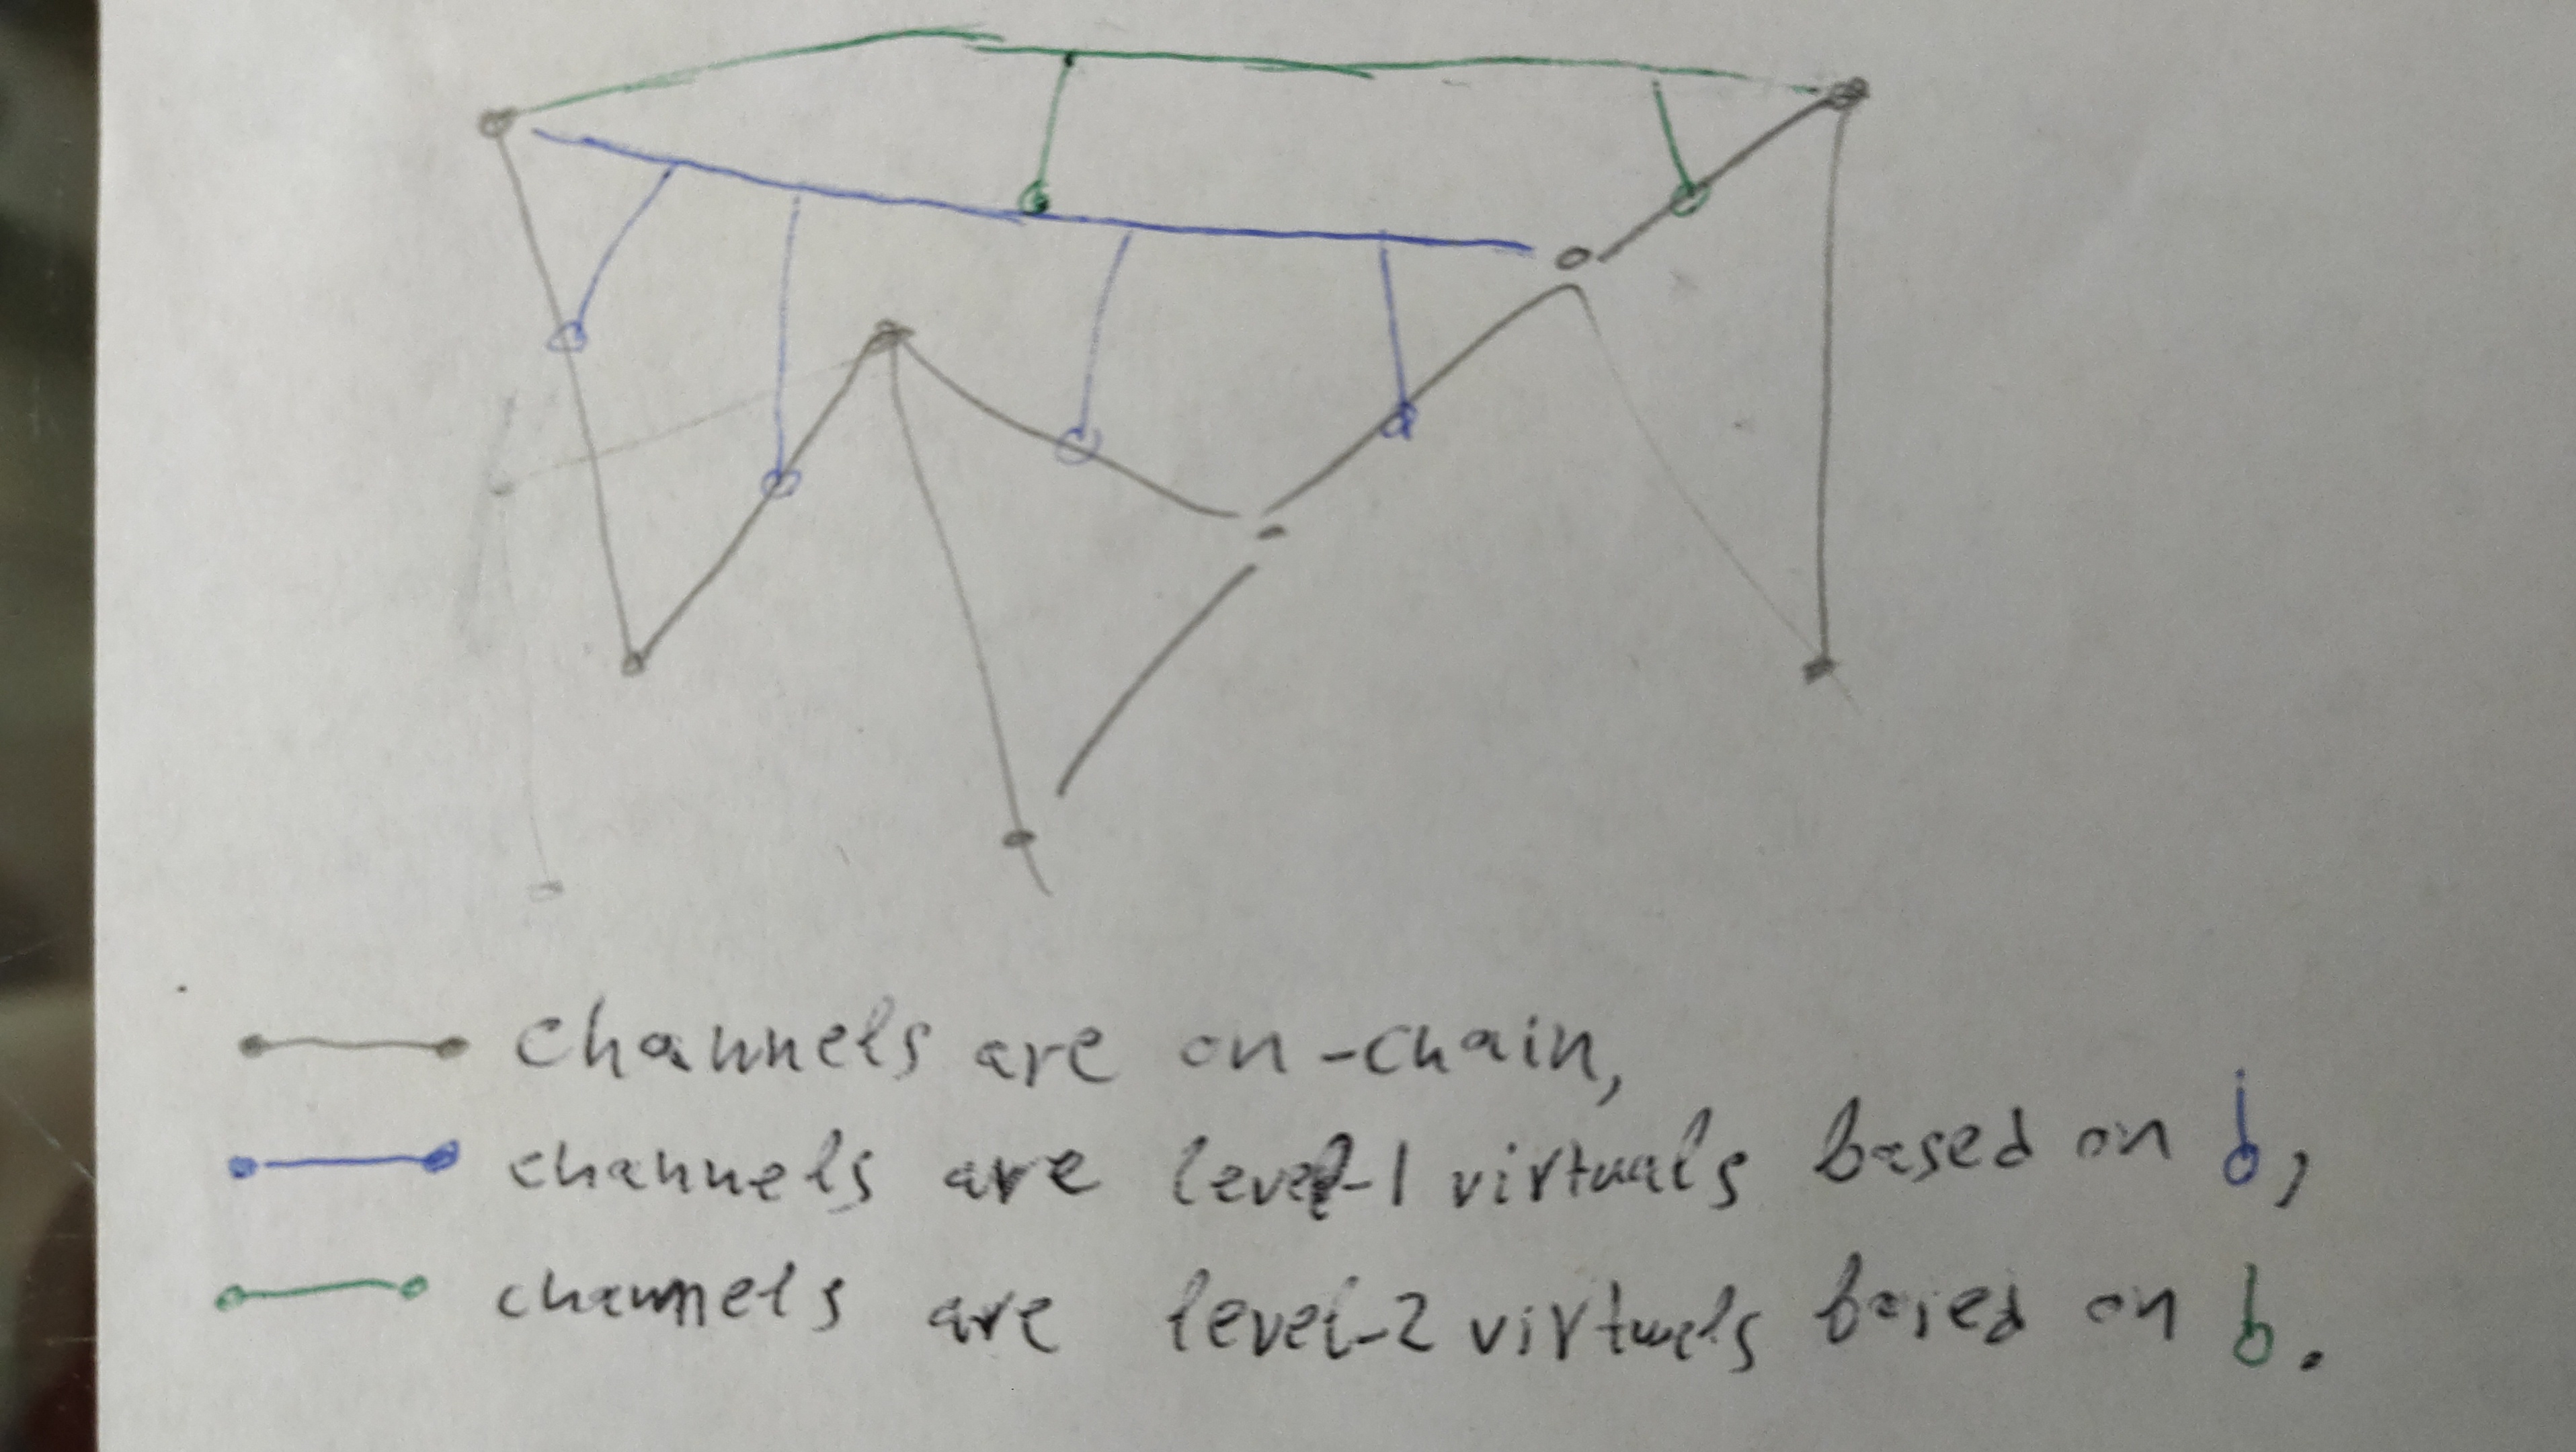 channels are on-chain,
channels are level-1 virtuals based on ,
channels are level-2 virtuals based on .